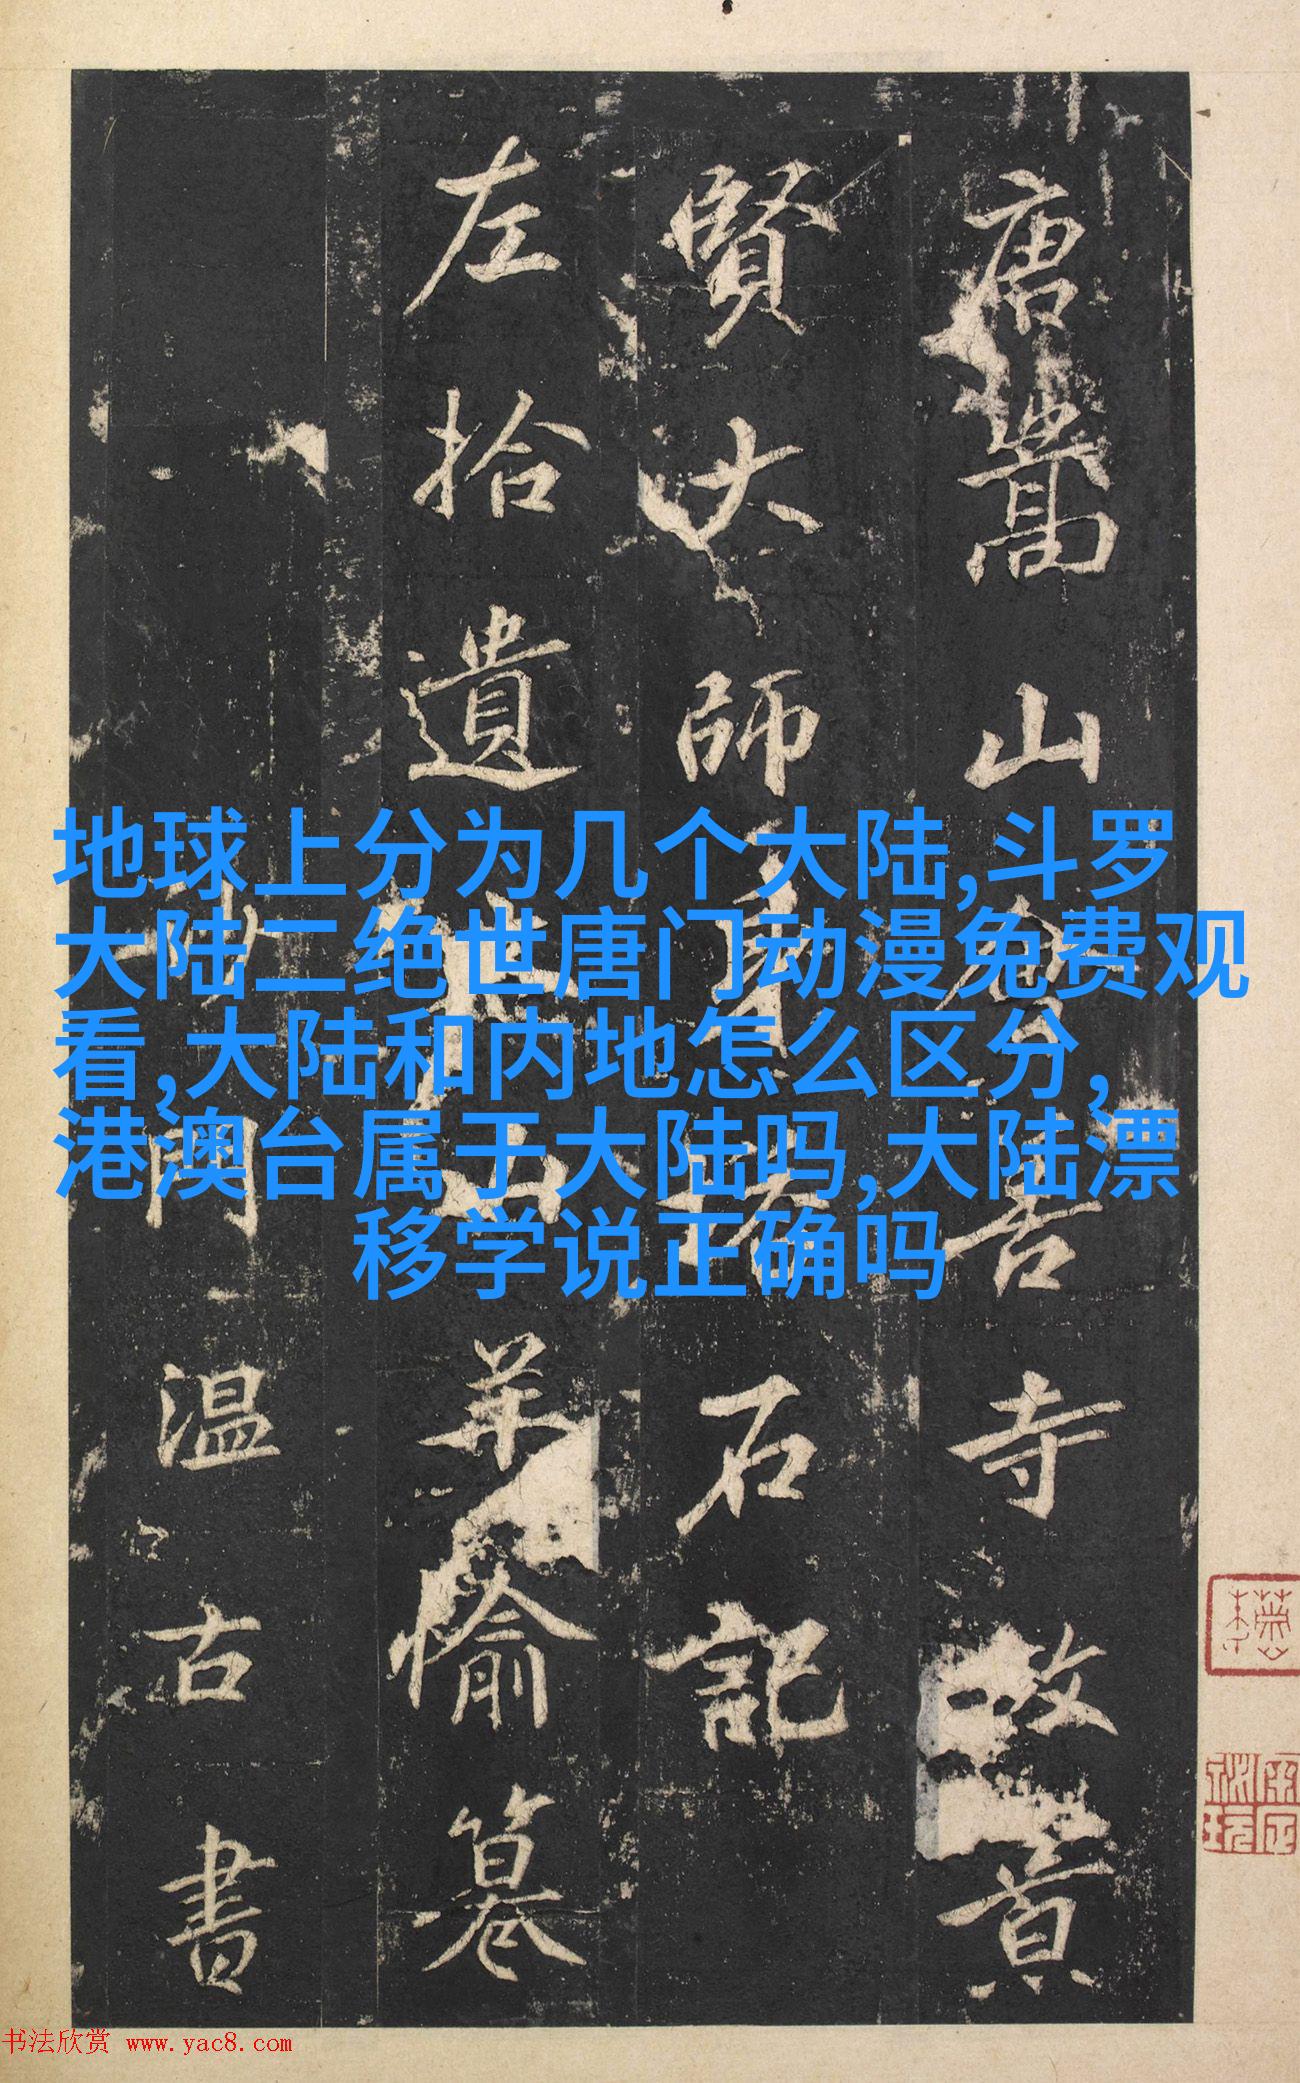 唐嵩山會善寺故景
賢大師身塔石記
左拾遺山羊愉纂
沙門温古書
地球上分为几个大陆,斗罗
大陆二绝世唐门动漫免费观
看,大陆和内地怎么区分,
港澳台属于大陆吗,大陆漂
移学说正确吗
书法欣赏 www.yac8.com